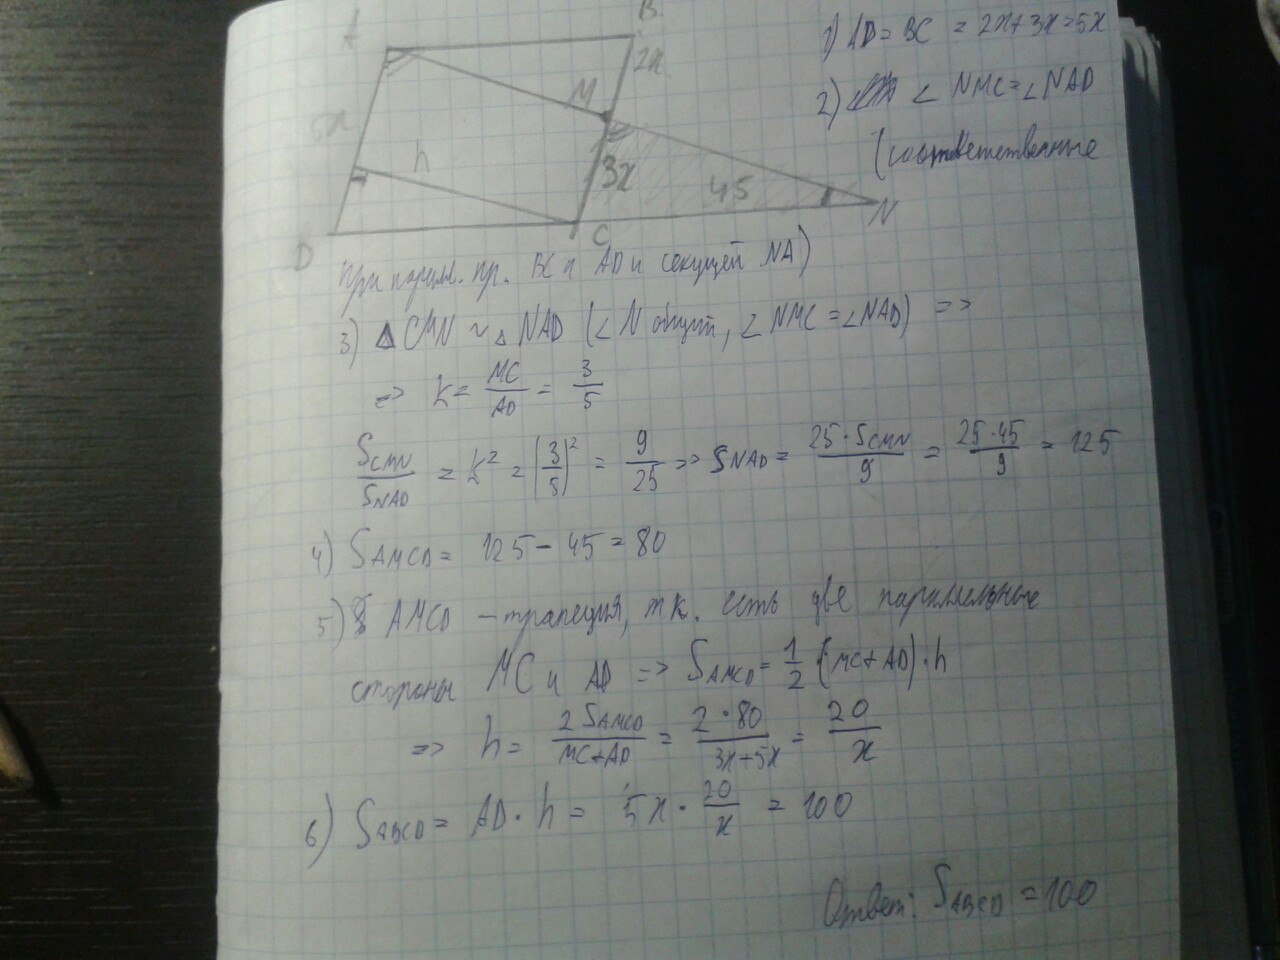 A
B
2x
M
h
3x
45
N
D
C
1) AD = BC = 2x+3x=5x
2) ∠ NMC=∠NAD
(соответственные
при парал. пр. BC и AD и секущей NA)
3) △ CMN ~ △ NAD (∠N общий, ∠NMC=∠NAD) =>
=> k= MC/AD = 3/5
S_CMN/S_NAD = k² = (3/5)² = 9/25 => S_NAD = 25·S_CMN/9 = 25·45/9 = 125
4) S_AMCD= 125-45=80
5) AMCD - трапеция, т.к. есть две параллельные
стороны MC и AD => S_AMCD= 1/2 (MC+AD)·h
=> h= 2S_AMCD/MC+AD = 2·80/3x+5x = 20/x
6) S_ABCD= AD·h= 5x·20/x = 100
Ответ: S_ABCD =100